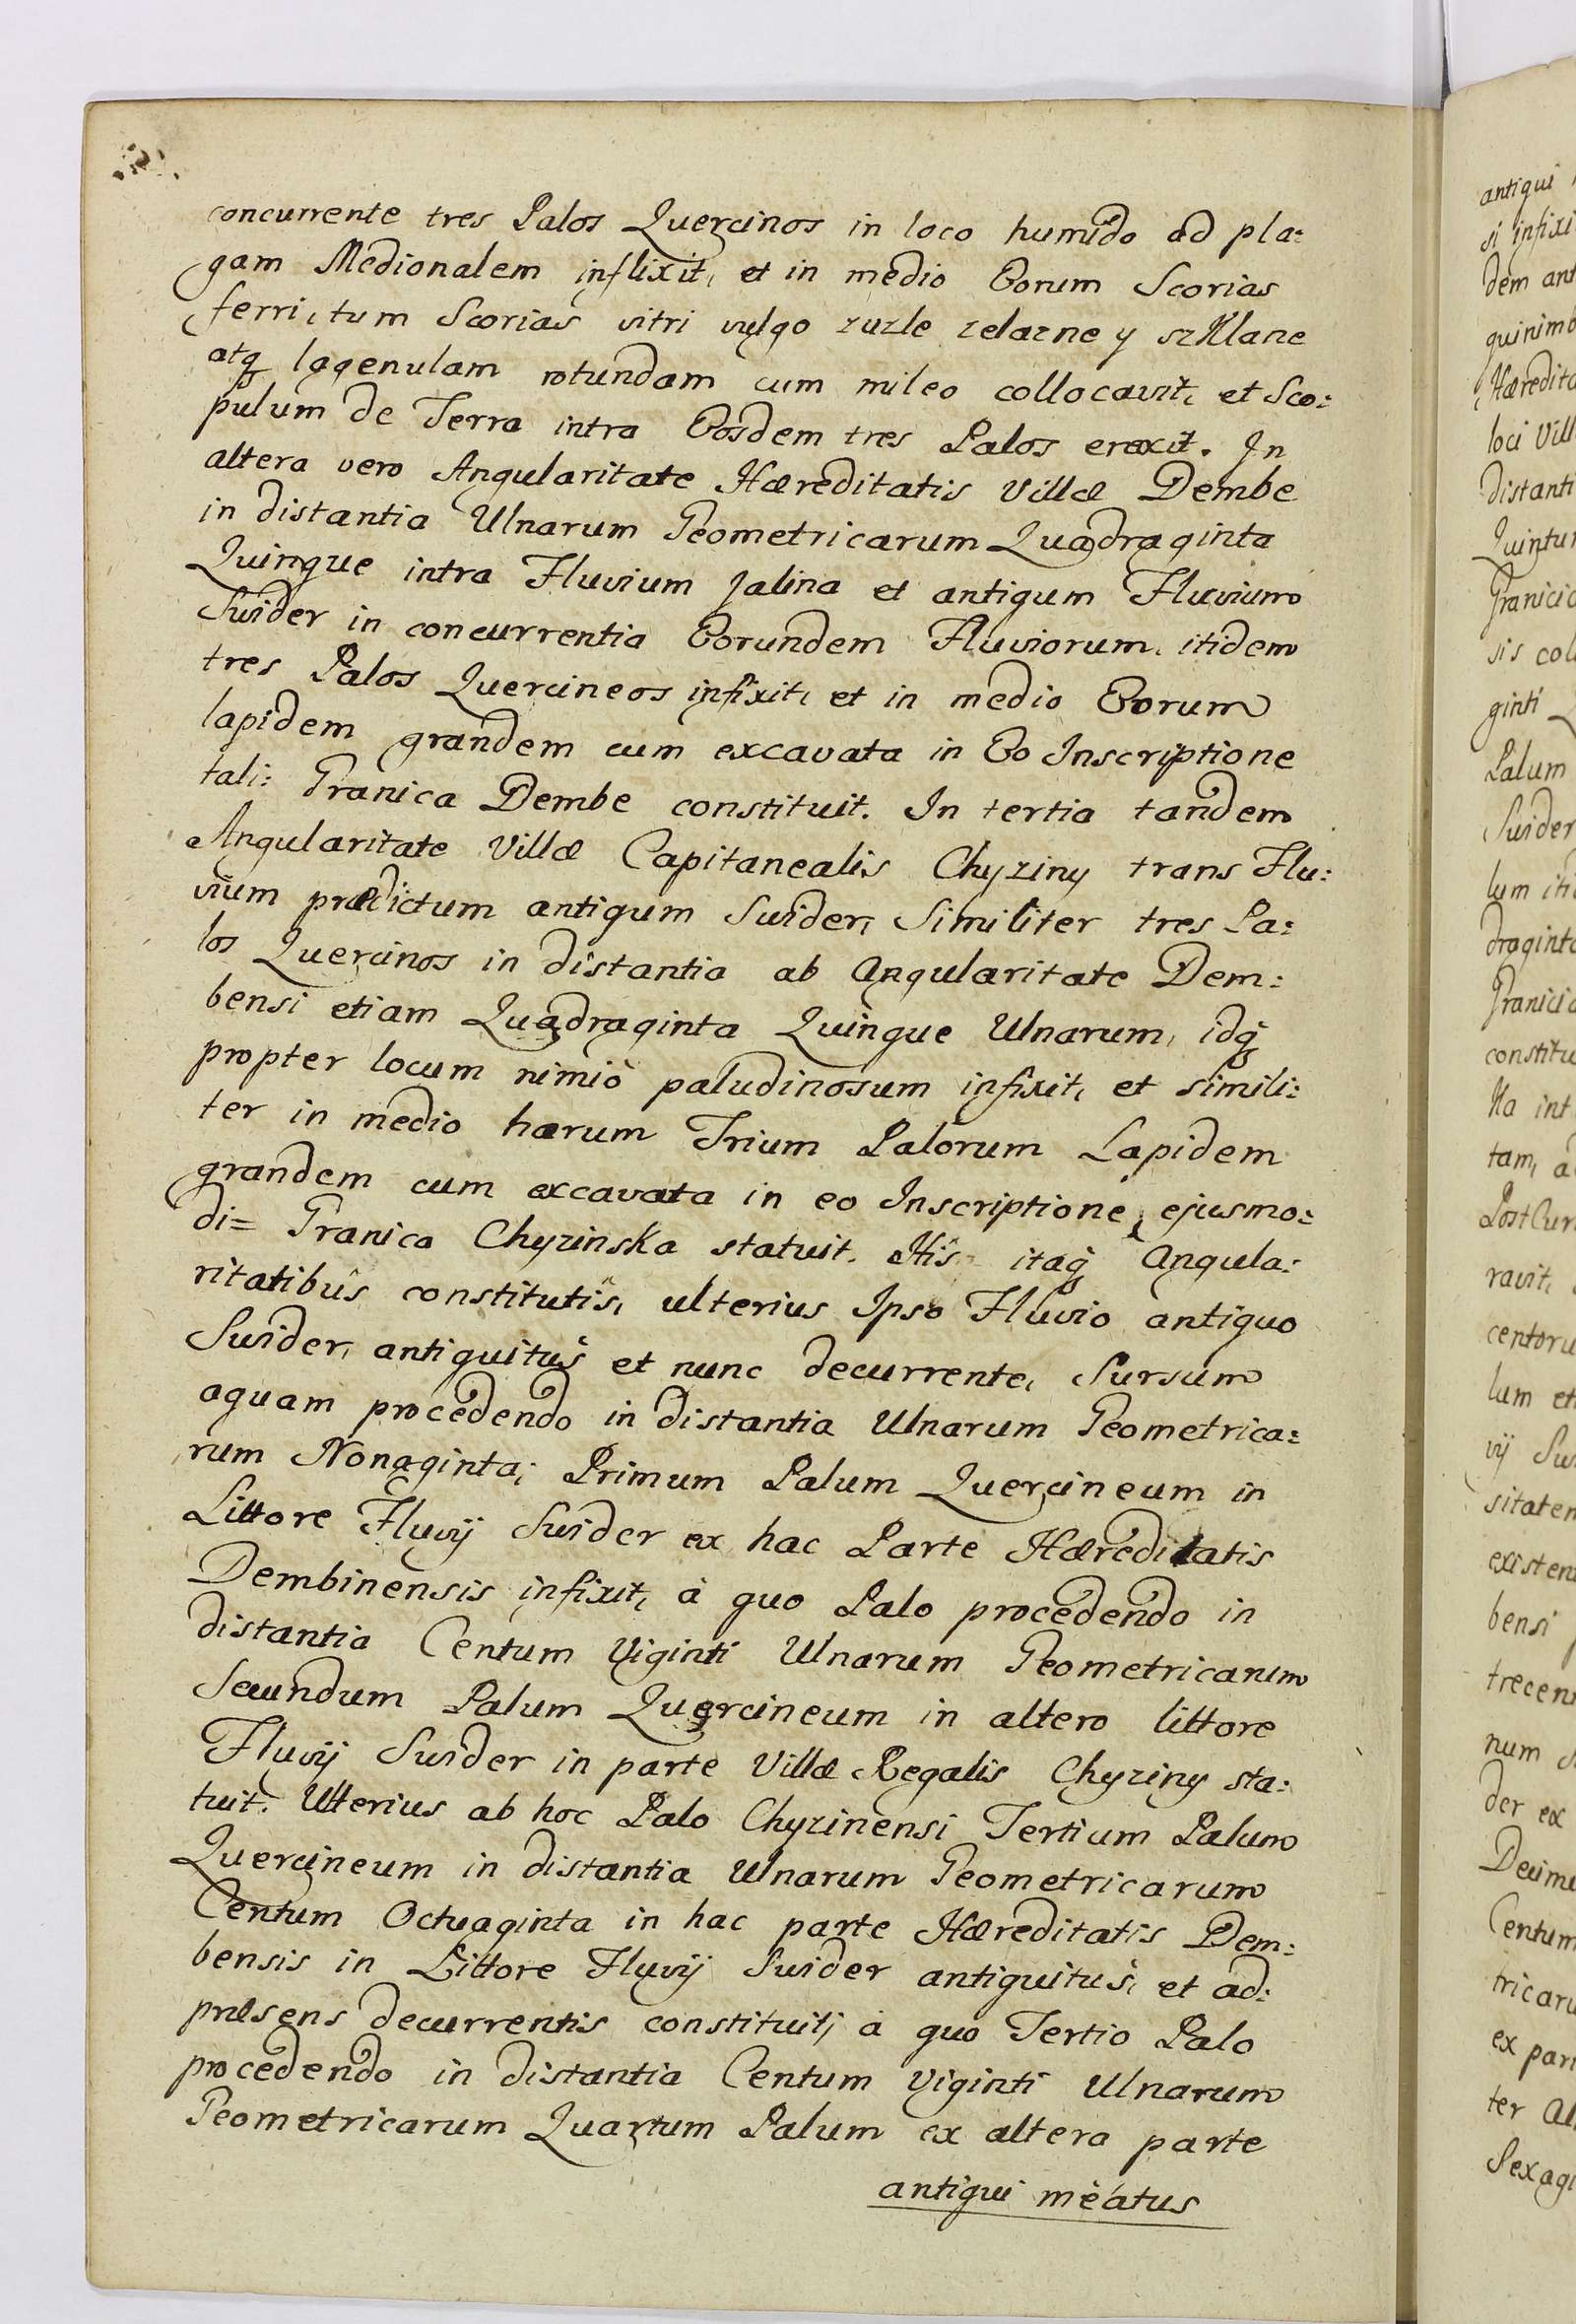 concurrente tres Palos Quercinos in loco humido ad pla:
gam Medionalem inflixit, et in medio Eorum Scorias
ferri, tum Scorias vitri vulgo zuzle zelazne y szklane
atq lagenulam rotundam cum mileo collocavit, et Sco:
pulum de Terra intra Eosdem tres Palos erexit. In
altera vero Angularitate Hæreditatis Villæ Dembe
in distantia Ulnarum Geometricarum Quadraginta
Quinque intra Fluvium Jalina et antiqum Fluvium
Swider in concurrentia Eorundem Fluviorum, itidem
tres Palos Quercineos infixit, et in medio Eorum
lapidem grandem cum excavata in Eo Inscriptione
tali: Granica Dembe constituit. In tertia tandem
Angularitate Villæ Capitanealis Chyziny trans Flu:
vium prædictum antiqum Swider, Similiter tres Pa:
los Quercinos in distantia ab Angularitate Dem:
bensi etiam Quadraginta Quinque Ulnarum, idq
propter locum nimiò paludinosum infixit, et simili:
ter in medio harum Trium Palorum Lapidem
grandem cum excavata in eo Inscriptione, ejusmo:
di= Granica Chyzinska statuit. Hîs itaq Angula:
ritatibûs constitutîs, ulterius Ipso Fluvio antiquo
Swider, antiquitùs et nunc decurrente, Sursum
aquam procedendo in distantia Ulnarum Geometrica:
rum Nonaginta; Primum Palum Quercineum in
Littore Fluvij Swider ex hac Parte Hæreditatis
Dembinensis infixit, à quo Palo procedendo in
distantia Centum Viginti Ulnarum Geometricarum
Secundum Palum Quercineum in altero littore
Fluvij Swider in parte Villæ Regalis Chyziny sta:
tuit. Ulterius ab hoc Palo Chyzinensi Tertium Palum
Quercineum in distantia Ulnarum Geometricarum
Centum Octuaginta in hac parte Hæreditatis Dem:
bensis in Littore Fluvij Swider antiquitùs, et ad:
præsens decurrentis constituit; à quo Tertio Palo
procedendo in distantia Centum Viginti Ulnarum
Geometricarum Quartum Palum ex altera parte
antiqui meatus
antiqui
si infixi
dem ant
quinimo
Hæredita
loci Vill
distanti
Quintu
Granici
sis col
ginti
Palum
Swider
lum iti
draginta
Granici
constitu
Ka int
tam, a
Post Cur
ravit,
centoru
lum et
vij Sw
sitatem
existen
bensi
trecen
num
der ex
Decimu
Centum
tricaru
ex part
ter Al
Sexagi